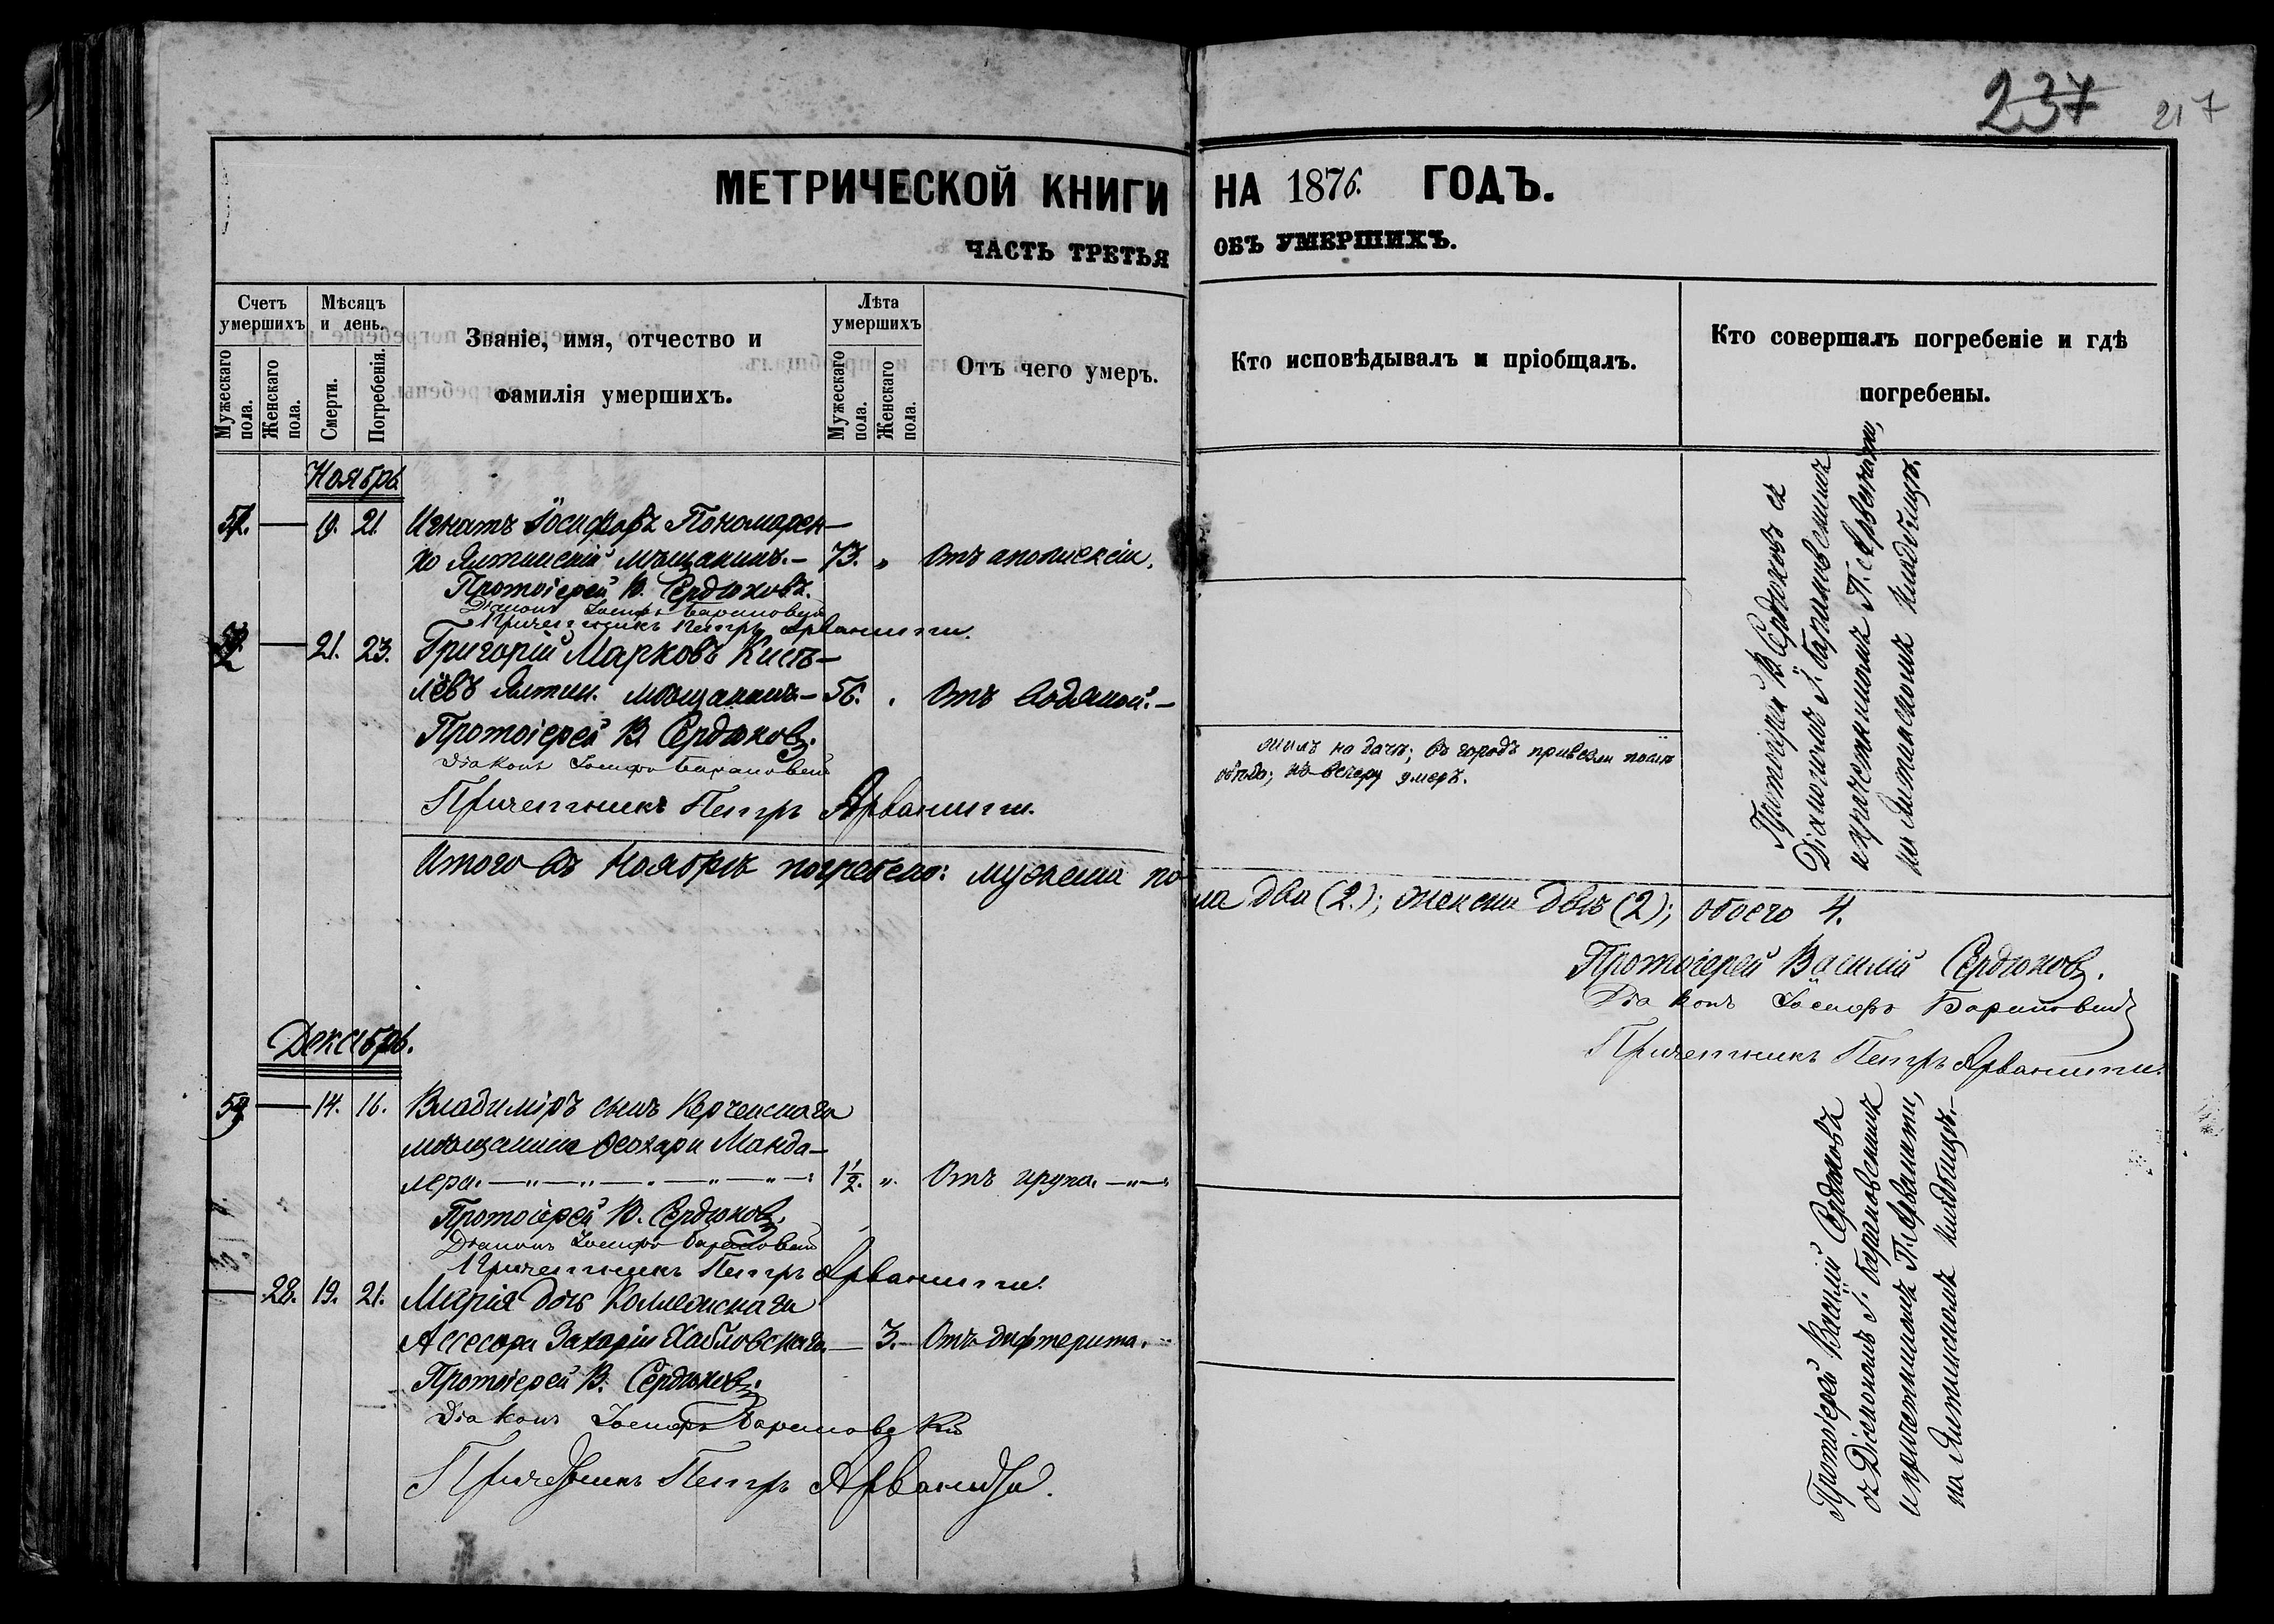 237 217
МЕТРИЧЕСКОЙ КНИГИ НА 1876. ГОДЪ.
ЧАСТЬ ТРЕТЬЯ ОБЪ УМЕРШИХЪ.
Счетъ умершихъ
Мужескаго пола.
Женскаго пола.
Мѣсяцъ и день.
Смерти.
Погребенія.
Званіе, имя, отчество и
фамилія умершихъ.
Лѣта умершихъ
Мужескаго пола.
Женскаго пола.
Отъ чего умеръ.
Кто исповѣдывалъ и пріобщалъ.
Кто совершалъ погребеніе и гдѣ
погребены.
Ноябрь
— 19. 21. Игнатъ Іосифовъ Пономарен-
ко Ялтинскій мѣщанинъ.— 73. „ Отъ апоплексіи.
Протоіерей В. Сердюковъ.
Діаконъ Іосифъ Барановскій
Причетникъ Петръ Арванити.
— 21. 23. Григорій Марковъ Кисе-
лёвъ Ялтин. мѣщанинъ.— 56. „ Отъ водяной.—
Протоіерей В. Сердюковъ.
Діаконъ Іосифъ Барановскій
Причетникъ Петръ Арванити.
жилъ на дачѣ; въ городъ привезли послѣ
обѣда; къ вечеру умеръ.
Протоіерей В. Сердюковъ съ
Діакономъ І. Барановскимъ
и причетникомъ П. Арванити,
на Ялтинскомъ кладбищѣ.
Итого въ Ноябрѣ погребено: мужеска пола два (2.); женска двѣ (2); обоего 4.
Протоіерей Василій Сердюковъ.
Діаконъ Іосифъ Барановскій
Причетникъ Петръ Арванити.
Декабрь.
— 14. 16. Владиміръ сынъ Керченскаго
мѣщанина Ѳеохари Манда-
лера. 1½. „ Отъ крупа.
Протоіерей В. Сердюковъ.
Діаконъ Іосифъ Барановскій
Причетникъ Петръ Арванити.
— 28. 19. 21. Марія дочь Коллежскаго
Ассесора Захарія — 3.— Отъ дифтерита.
Протоіерей В. Сердюковъ.
Діаконъ Іосифъ Барановскій
Причетникъ Петръ Арванити.
Протоіерей Василій Сердюковъ
съ Діакономъ І. Барановскимъ
и причетникомъ П. Арванити,
на Ялтинскомъ кладбищѣ.—